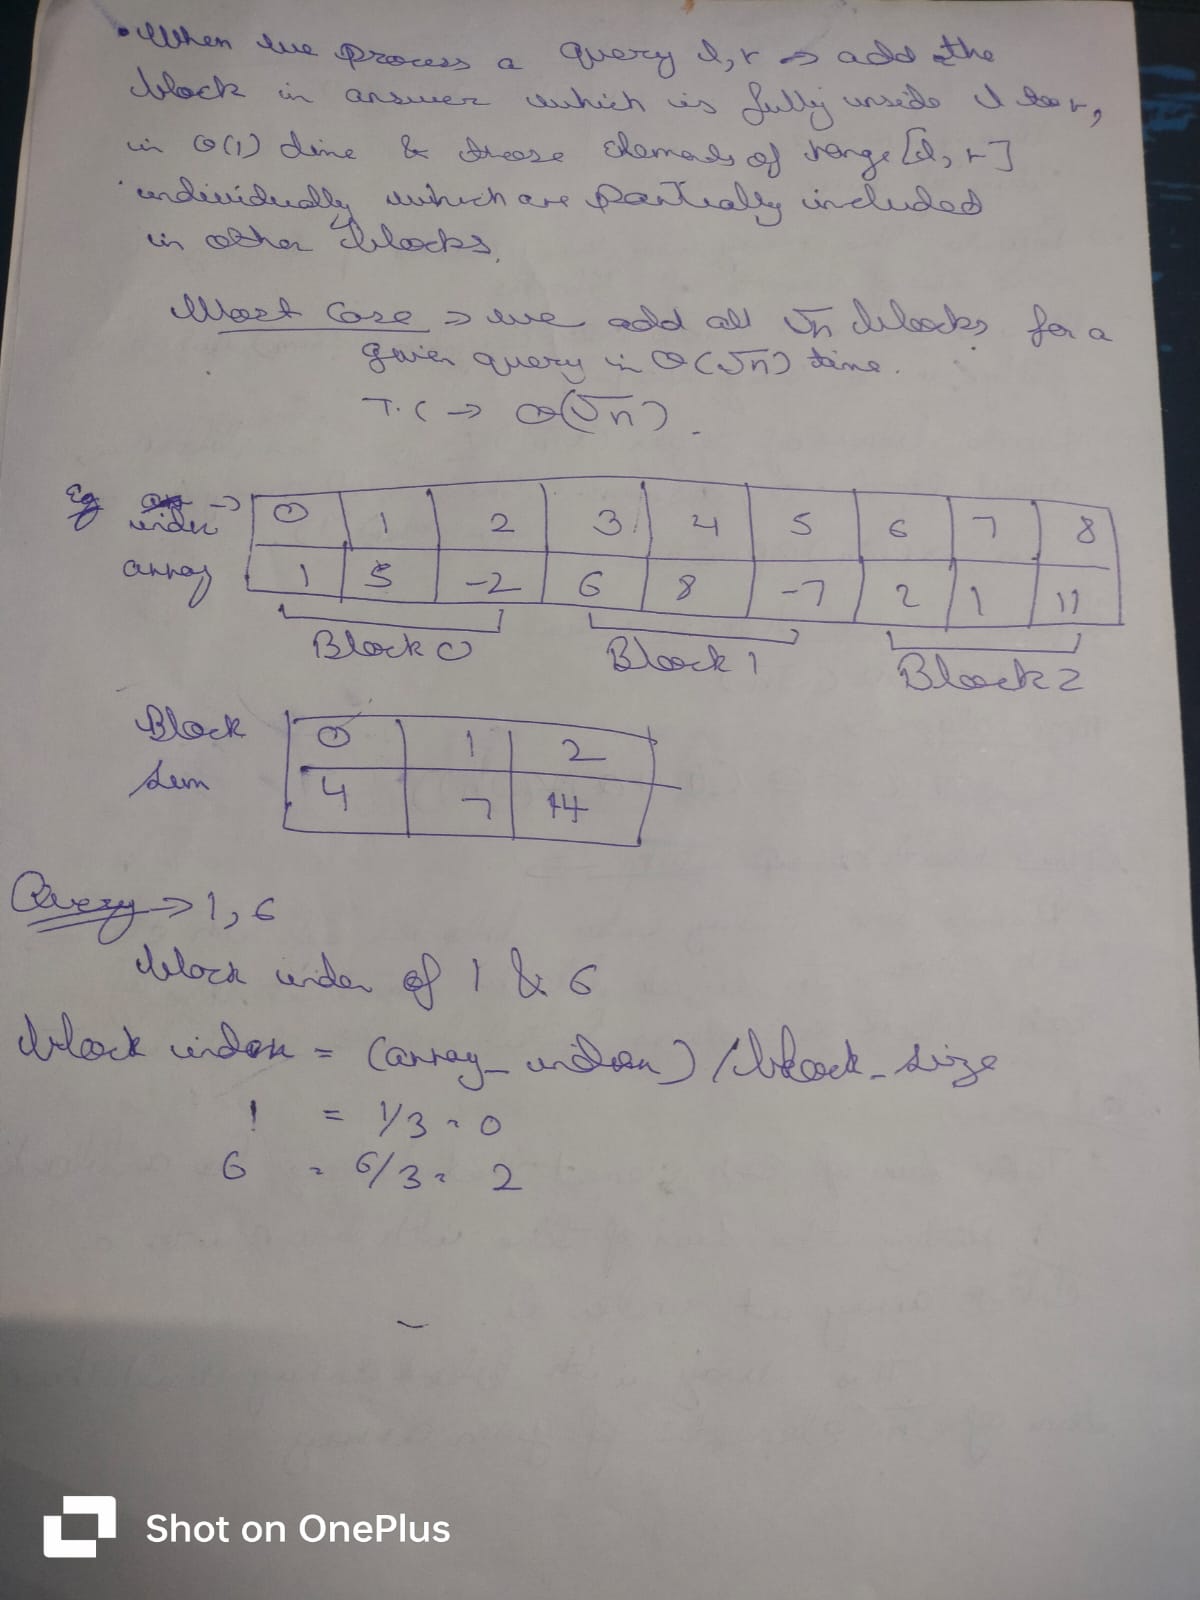 • When we process a query l, r → add the
block in answer which is fully inside l to r,
in O(1) time & those elements of range [l, r]
individually which are partially included
in other blocks.
Worst Case → we add all √n blocks for a
given query in O(√n) time.
T.C → O(√n).
Eg index → 0 1 2 3 4 5 6 7 8
array 1 5 -2 6 8 -7 2 1 11
Block 0 Block 1 Block 2
Block 0 1 2
sum 4 7 14
Query → 1, 6
block index of 1 & 6
block index = (array_index) / block_size
1 = 1/3 = 0
6 = 6/3 = 2
Shot on OnePlus